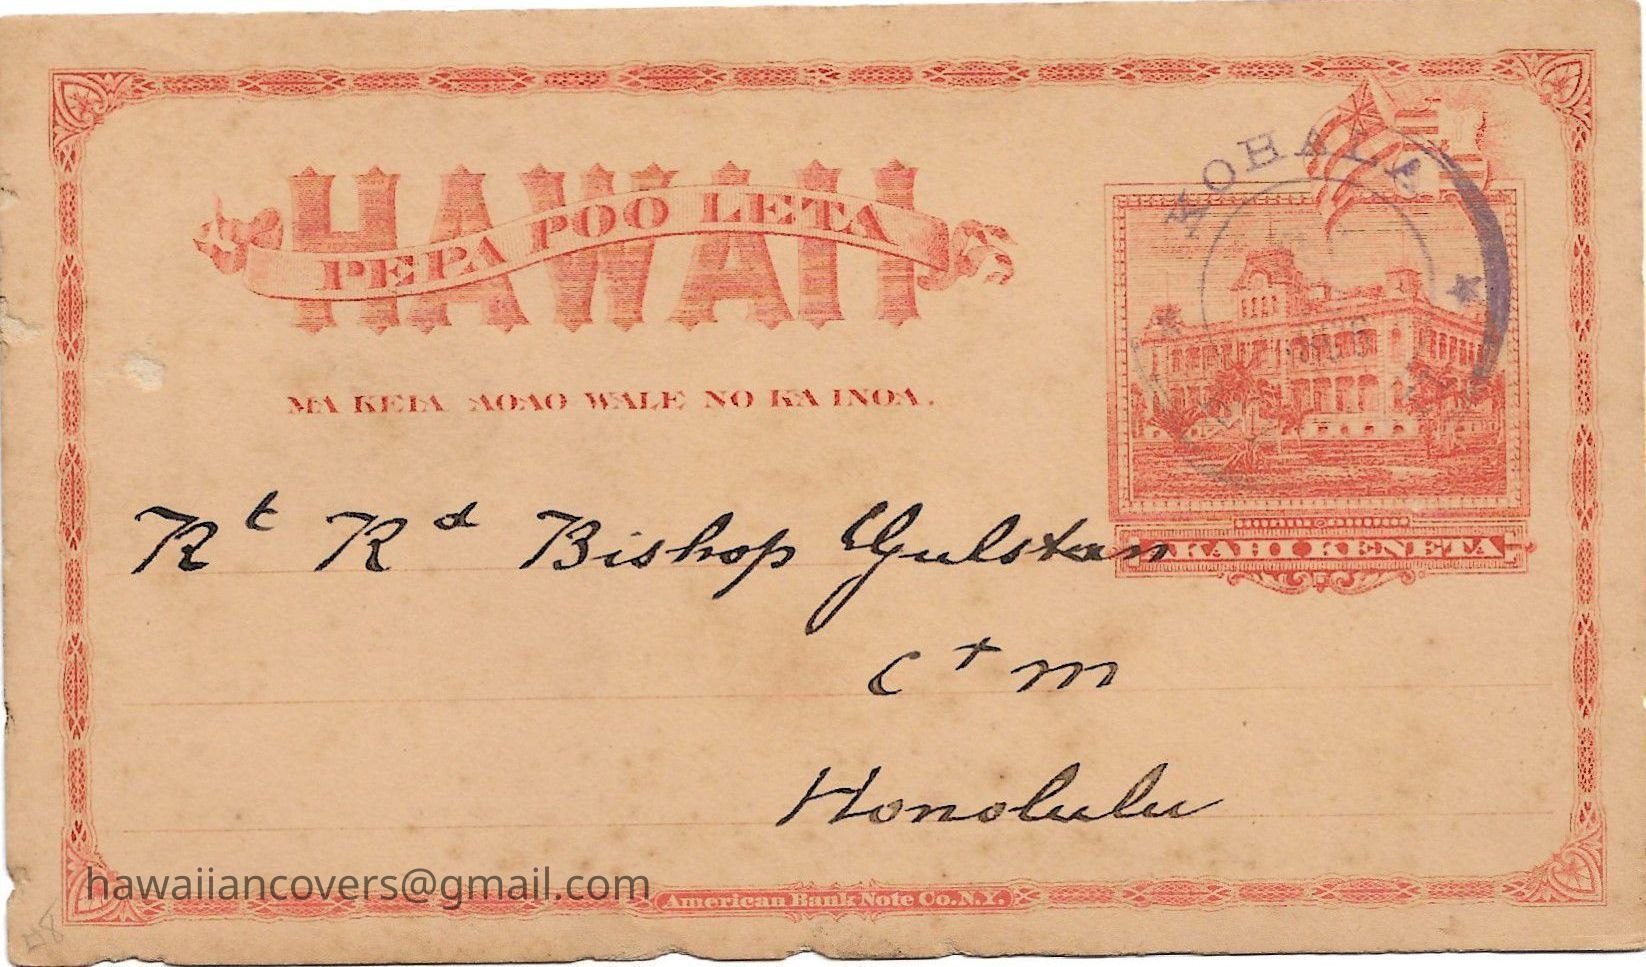 HAWAII
PEPA POO LETA
MA KEIA AOAO WALE NO KA INOA.
KOHALA
AKAHI KENETA
Rt Rd Bishop Gulstan
C + M
Honolulu
hawaiiancovers@gmail.com
American Bank Note Co. N.Y.